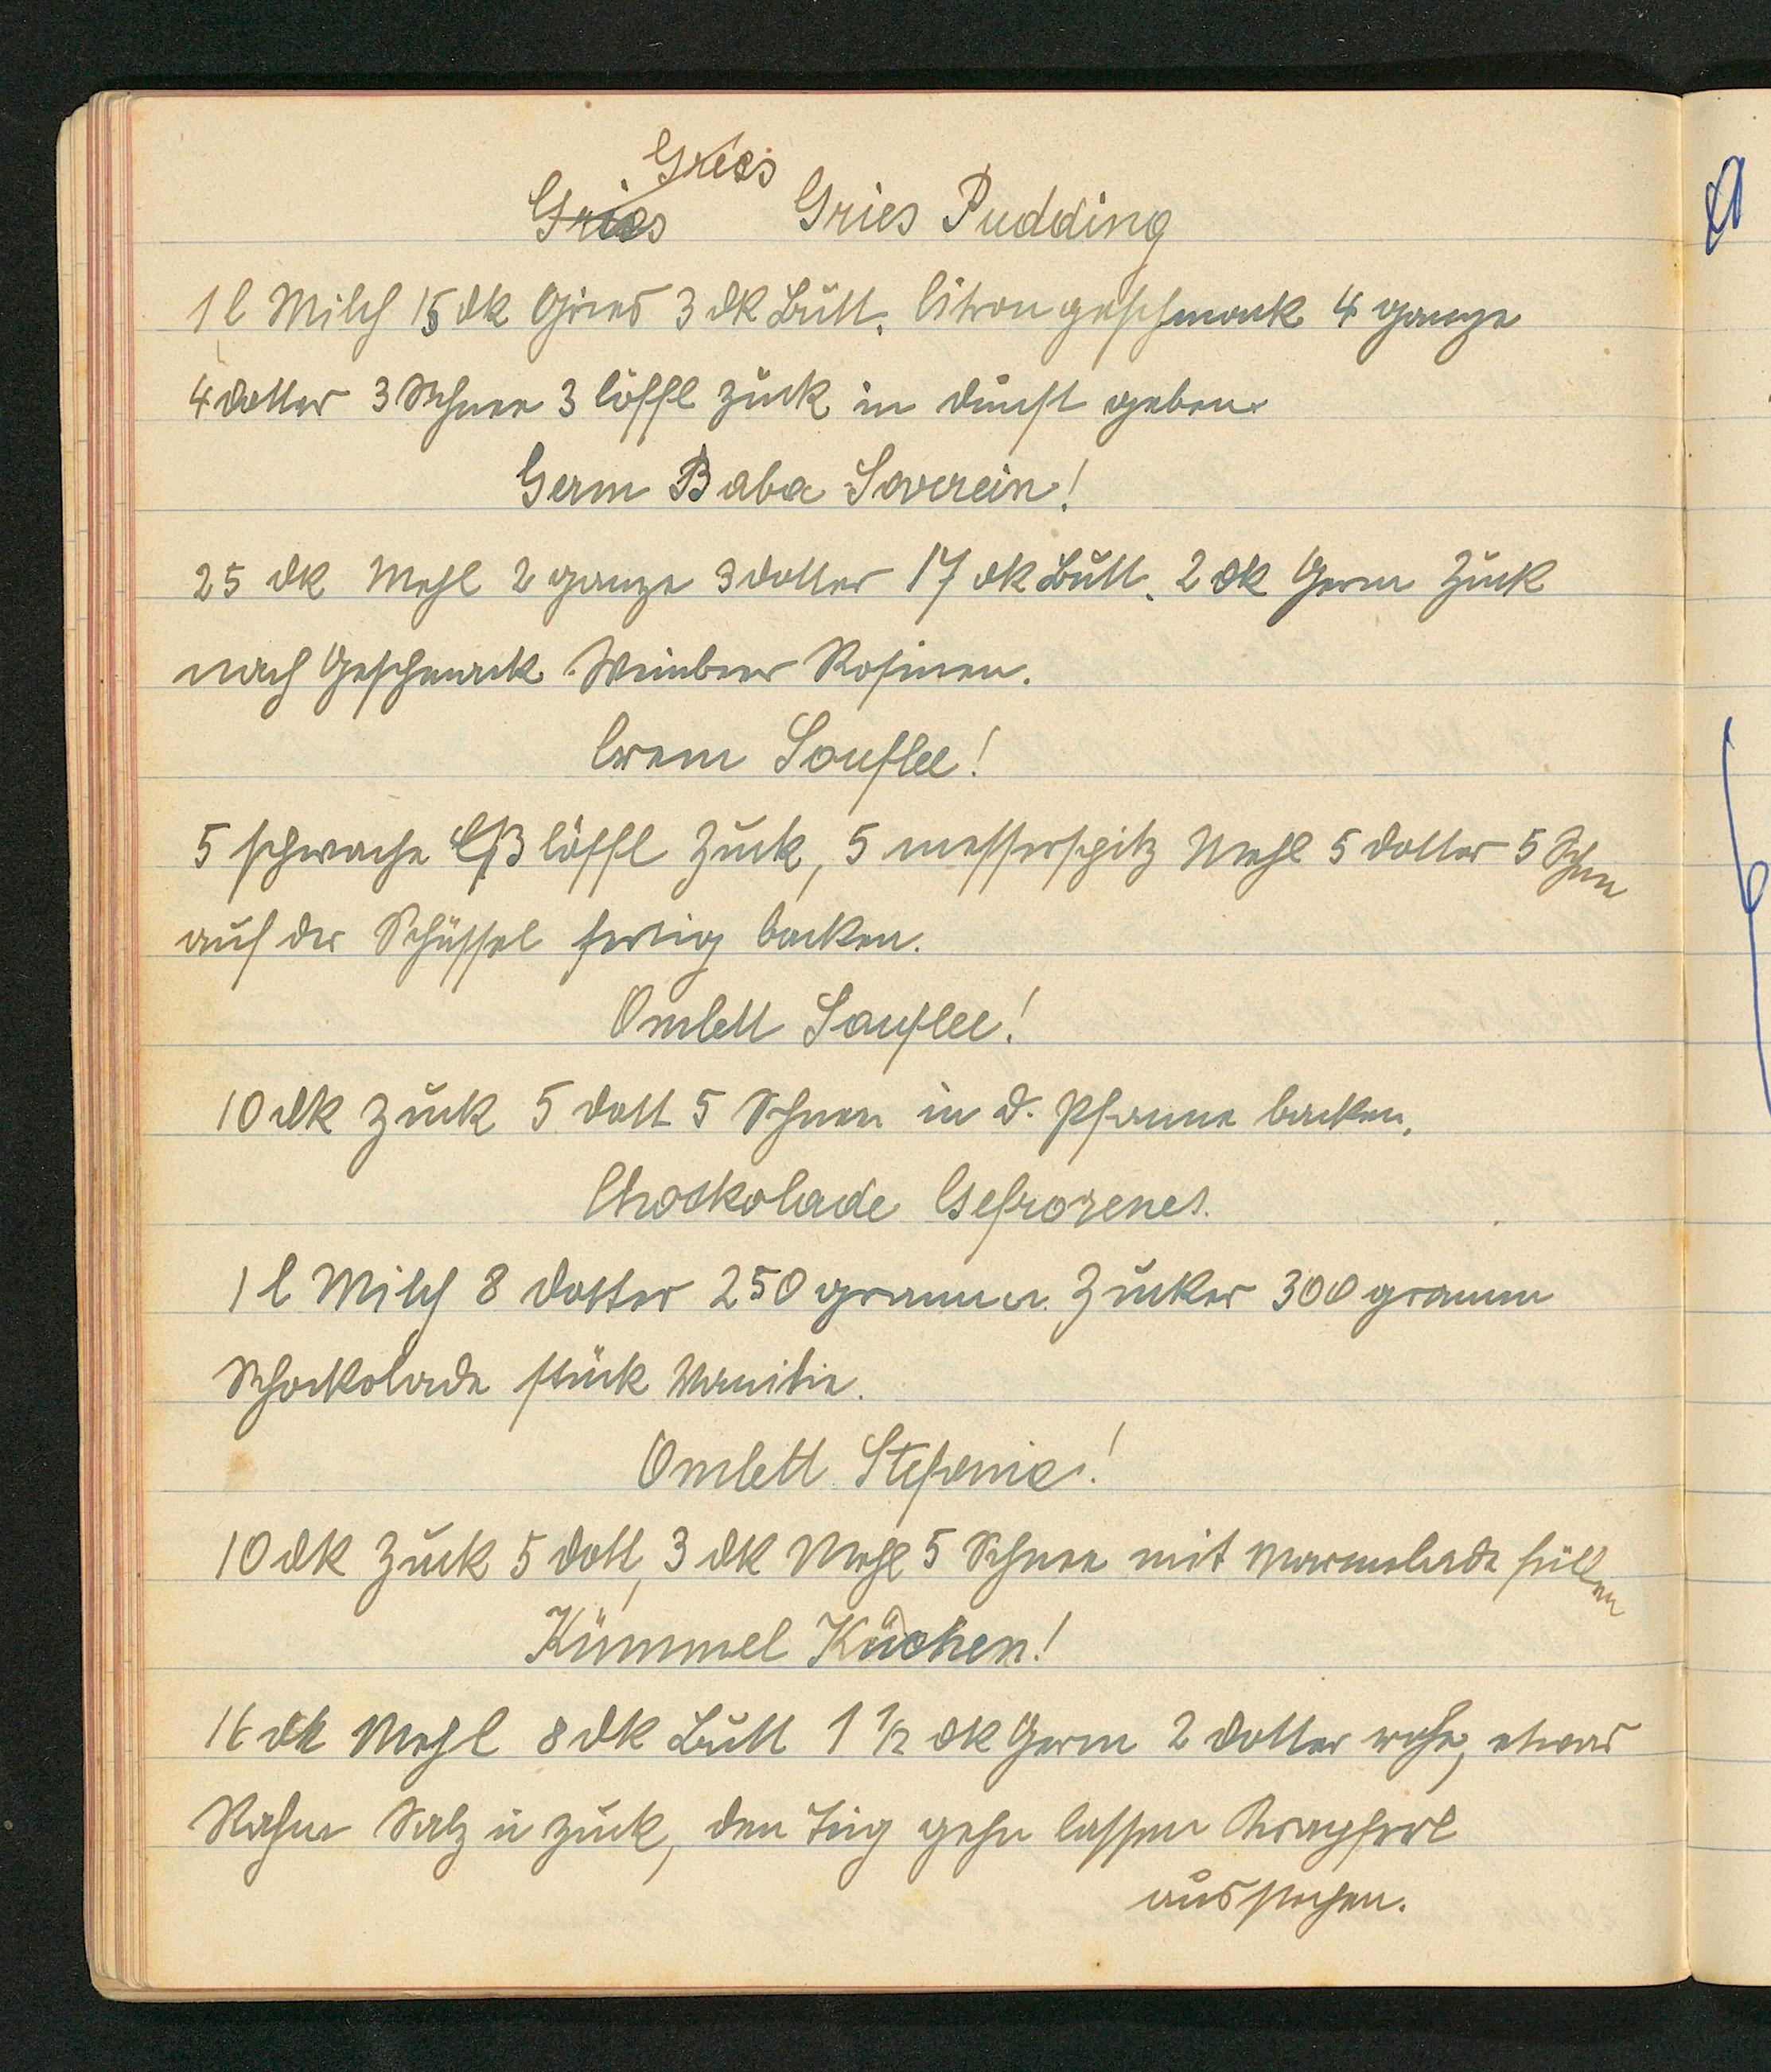 Gries
Gries Gries Pudding
1 l Milch 15 dk Gries 3 dk Butt. Citron geschmack 4 ganze
4 dotter 3 Schnee 3 löffl Zuck in dunst geben
Germ Baba Saverein!
25 dk Mehl 2 ganze 3 dotter 17 dk Butt. 2 dk Germ Zuck
nach Geschmack Weinbeer Rosinen.
Crem Souflee!
5 schwache Eßlöffl Zuck, 5 messerspitz Mehl 5 dotter 5 Schnee
auf der Schüssel fertig backen.
Omlett Souflee!
10 dk Zuck 5 dott 5 Schnee in d. Pfanne backen.
Chockolade Gefrorenes.
1 l Milch 8 dotter 250 gramm Zucker 300 gramm
Schockolade stück Vanilie.
Omlett Stefanie!
10 dk Zuck 5 dott, 3 dk Mehl 5 Schnee mit Marmelade füllen
Kümmel Küchen!
dk Mehl 8 dk Butt 1 1/2 dk Germ 2 dotter rohe, etwas
Rahm Salz u Zuck, den Teig gehn lassen Krapferl
ausstechen.